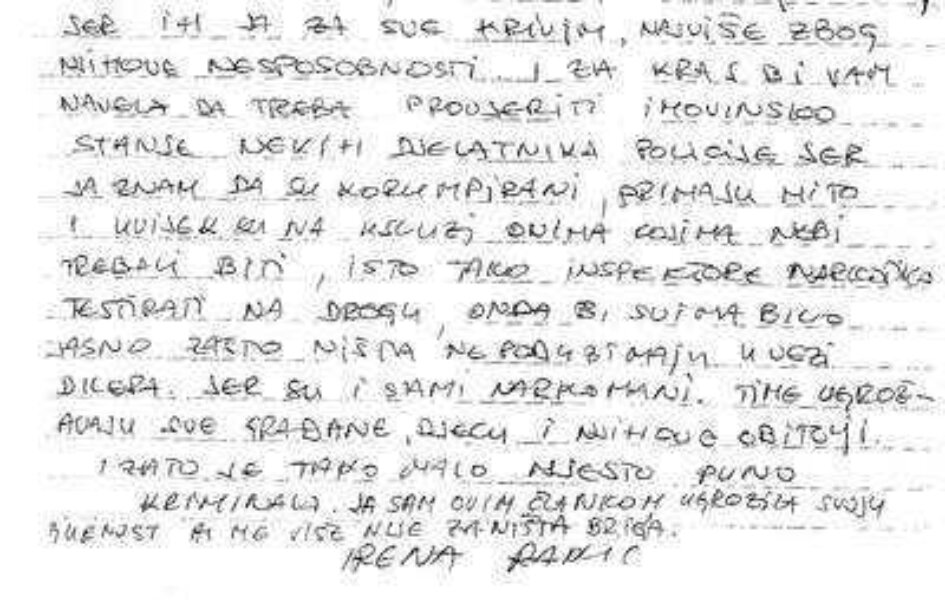 JER IH JA ZA SVE KRIVIM, NAJVIŠE ZBOG
NJIHOVE NESPOSOBNOSTI. I ZA KRAJ BI VAM
NAVELA DA TREBA PROVJERITI IMOVINSKO
STANJE NEKIH DJELATNIKA POLICIJE JER
JA ZNAM DA SU KORUMPIRANI, PRIMAJU MITO
I UVIJEK SU NA USLUZI ONIMA KOJIMA NEBI
TREBALI BITI, ISTO TAKO INSPEKTORE NARKOTIKA
TESTIRATI NA DROGU, ONDA BI SVIMA BILO
JASNO ZAŠTO NIŠTA NE PODUZIMAJU U VEZI
DILERA. JER SU I SAMI NARKOMANI. TIME UGROŽ-
AVAJU SVE GRAĐANE, DJECU I NJIHOVE OBITELJI.
I ZATO JE TAKO MALO MJESTO PUNO
KRIMINALA. JA SAM OVIM ČLANKOM UGROZILA SVOJU
AL ME VIŠE NIJE ZA NIŠTA BRIGA.
IRENA